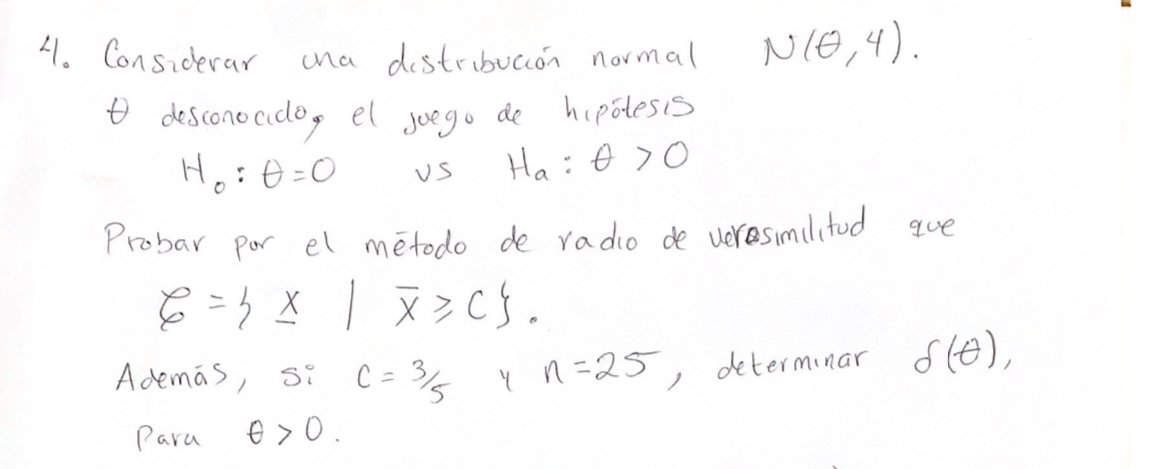 4. Considerar una distribución normal N(θ,4).
θ desconocido, el juego de hipótesis
H₀: θ=0 vs Hₐ: θ>0
Probar por el método de radio de verosimilitud que
𝒞 = { X̲ | X̄ ≥ C}.
Además, si C = 3/5 y n=25, determinar δ(θ),
Para θ>0.